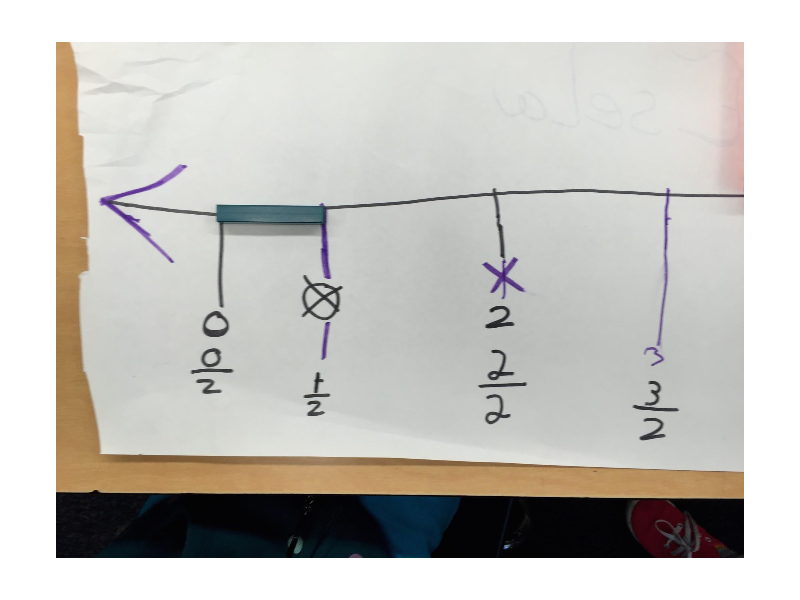 0
0/2
1/2
2
2/2
3
3/2